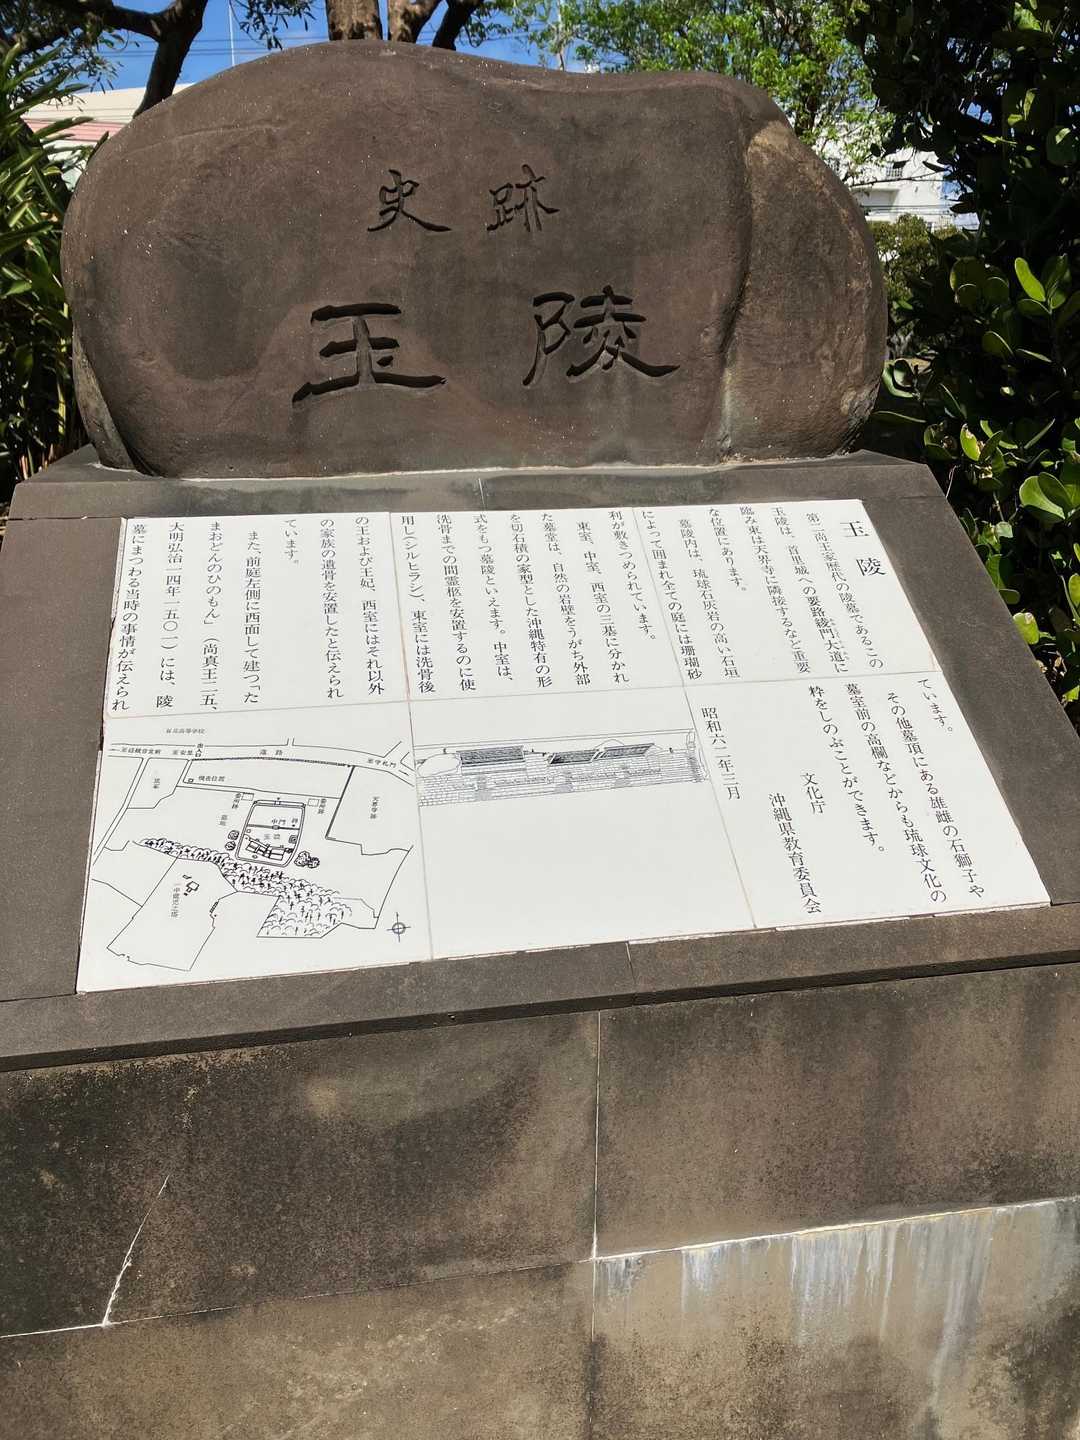 史跡
玉陵
玉陵
第二尚王家歴代の陵墓であるこの
玉陵は、首里城への要路綾門大道に
臨み東は天界寺に隣接するなど重要
な位置にあります。
墓陵内は、琉球石灰岩の高い石垣
によって囲まれ全ての庭には珊瑚砂
利が敷きつめられています。
東室、中室、西室の三基に分かれ
た墓堂は、自然の岩壁をうがち外部
を切石積の家型とした沖縄特有の形
式をもつ墓陵といえます。中室は、
洗骨までの間霊柩を安置するのに使
用し（シルヒラシ）、東室には洗骨後
の王および王妃、西室にはそれ以外
の家族の遺骨を安置したと伝えられ
ています。
また、前庭左側に西面して建つ「た
まおどんのひのもん」（尚真王二五、
大明弘治一四年一五〇一）には、陵
墓にまつわる当時の事情が伝えられ
ています。
その他墓頂にある雄雌の石獅子や
墓室前の高欄などからも琉球文化の
粋をしのぶことができます。
文化庁
沖縄県教育委員会
昭和六二年三月
首里高等学校
至安里
出入口
道路
至守礼門
現在位置
天界寺跡
番所跡
番所跡
墓地
中門
碑
玉陵
一中健児之塔